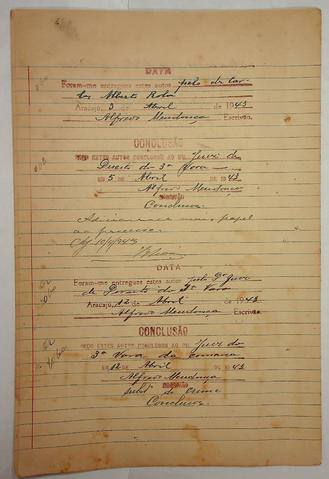 DATA
Foram-me entregues estes autos pelo dr Car-
los Alberto Rola
Aracajú, 3 de Abril de 1943
Alfredo Mendonça Escrivão.
CONCLUSÃO
FAÇO ESTES AUTOS CONCLUSOS AO DR. Juiz de
Direito da 3ª Vara
EM 5 DE Abril DE 1943
Alfredo Mendonça
ESCRIVÃO
Conclusos.
mais papel
ao processo
DATA
Foram-me entregues estes autos pelo Dr Juiz
de Direito da 3ª Vara
Aracajú, 12 de Abril de 1943
Alfredo Mendonça Escrivão.
CONCLUSÃO
FAÇO ESTES AUTOS CONCLUSOS AO DR. Juiz da
3ª Vara da comarca
EM 12 DE Abril DE 1943
Alfredo Mendonça
ESCRIVÃO
do crime
Conclusos.